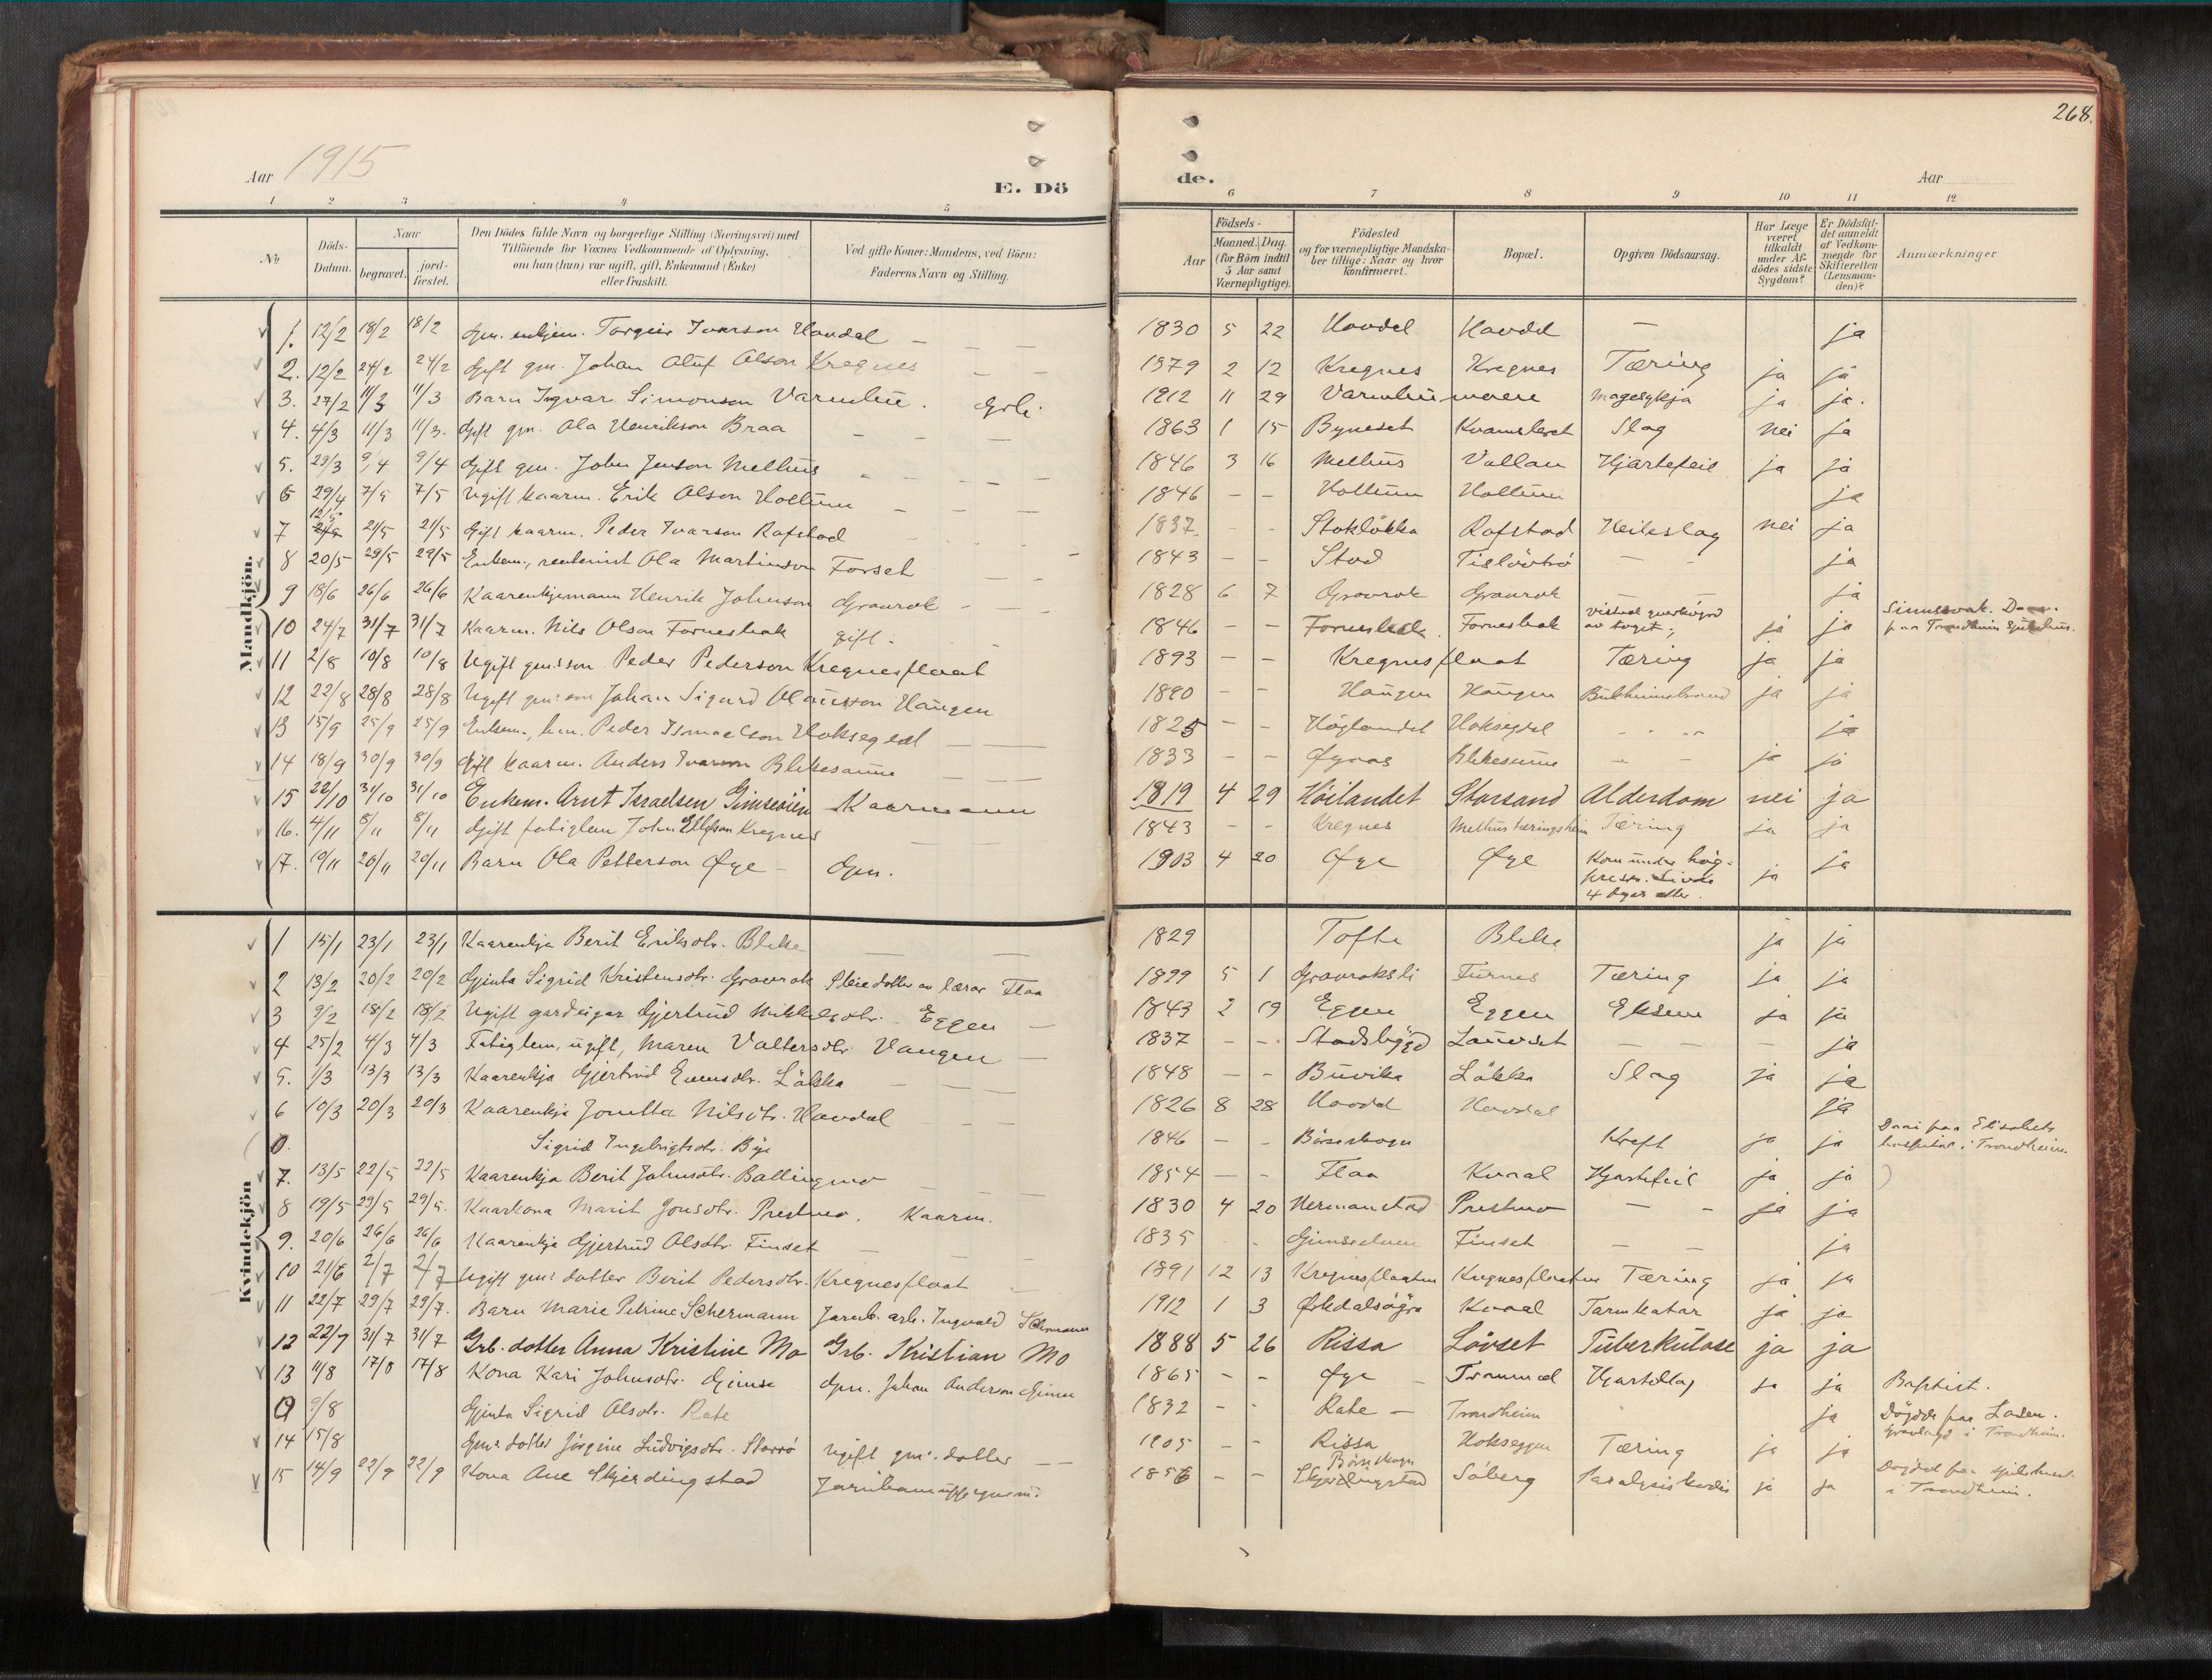 268.
Aar 1915
E. Dö
de.
Aar
1 2 3 4 5
6 7 8 9 10 11 12
No
Döds-Datum.
Naar
begravet.
jord-fæstet.
Den Dödes fulde Navn og borgerlige Stilling (Næringsvei) med
Tilföiende for Voxnes Vedkommende af Oplysning,
om han (hun) var ugift, gift, Enkemand (Enke)
eller fraskilt.
Ved gifte Koner: Mandens, ved Börn:
Faderens Navn og Stilling.
Födsels-
Aar
Maaned. Dag.
(for Börn indtil
5 Aar samt
Værnepligtige).
Födested
og for værnepligtige Mandska-
ber tillige: Naar og hvor
konfirmeret.
Bopæl.
Opgiven Dödsaarsag.
Har Læge
været
tilkaldt
under Af-
dödes sidste
Sygdom?
Er Dödsfal-
det anmeldt
af Vedkom-
mende for
Skifteretten
(Lensman-
den)?
Anmærkninger
Mandkjön.
1. 12/2 18/2 18/2 Torgeir Ivarson Havdal — — — 1830 5 22 Havdal Havdal — ja
2. 12/2 24/2 24/2 Gift gm. Johan Oluf Olson Kregnes — — 1879 2 12 Kregnes Kregnes Tæring ja ja
3. 27/2 11/3 11/3 Barn Ingvar Simonson Varmbu. 1912 11 29 Varmbumoen Magesykja ja ja.
4. 4/3 11/3 11/3. Gift gm. Ola Henrikson Braa — — — 1863 1 15 Byneset Slag nei ja
5. 23/3 9/4 9/4 Gift gm. John Jenson Melhus — — — 1846 3 16 Melhus Vollan Hjartefeil ja ja
6 29/4 7/5 7/5 Ugift kaarm. Erik Olson Hollum — — — 1846 — — Hollum Hollum ja
7 12/5 21/5 21/5 Gift kaarm. Peder Ivarson Rafstad 1837. - - Stokløkka Rafstad Heileslag nei ja
8 20/5 29/5 29/5 Enkem., rentenist Ola Martinson Forset — — 1843 — — Stod — ja
9 18/6 26/6 26/6 Kaarenkjemann Henrik Johnson Gravrok — — 1828 6 7 Gravrok Gravrok — — ja
10 24/7 31/7 31/7 Kaarm. Nils Olson Fornesbak gift. — 1846 — — Fornesbak Fornesbak av toget; ja ja
11 2/8 10/8 10/8 Ugift gm.son Peder Pederson Kregnesflaat 1893 — — Kregnesflaat Tæring ja ja
12 22/8 28/8 28/8 Ugift gm: son Johan Sigurd Olausson Haugen 1890 - - Haugen Haugen ja ja
13 15/9 25/9 25/9 Peder Ismaelson Hoksegdal — — 1825 - - Høglandet ja
14 18/9 30/9 30/9 Gift kaarm. Anders Ivarson Blekesaune — — — 1833 — — Øyaas Blekesaune — — ja ja
15 22/10 31/10 31/10 Enkem. Arnt Israelsen Gimseøien Kaarmann 1819 4 29 Höilandet Storsand Alderdom nei ja
16. 4/11 8/11 8/11 Gift fatiglem John Ellefson Kregnes — 1843 - - Kregnes Tæring ja ja
17. 19/11 26/11 26/11 Barn Ola Petterson Øye — Gm. 1903 4 20 Øye Øye Kom under høi-
ja ja
Kvindekjön
1 15/1 23/1 23/1 Kaarenkja Berit Eriksdtr. Bleke — — 1829 Tofte Bleke ja ja
2 13/2 20/2 20/2 Gjenta Sigrid Kristensdtr. Gravrok Pleiedotter av lærar Flaa 1899 5 1 Gravroksli Furnes Tæring ja ja
3 9/2 18/2 18/2 Ugift gardeigar Gjertrud Mikkelsdtr. Eggen — 1843 2 19 Eggen Eggen Eksem ja ja
4 25/2 4/3 4/3 Fatiglem, ugift, Maren Valtersdtr. Vangen — 1837 — — Stadsbygd — — — ja
5. 1/3 13/3 13/3 Kaarenkja Gjertrud Evensdtr. Løkka — — 1848 — — Buvika Løkka Slag ja ja
6 10/3 20/3 20/3 Kaarenkja Jonetta Nilsdtr. Havdal — — 1826 8 28 Havdal Havdal ja
0. Sigrid Ingebrigtsdtr. Bye 1846 — — Børseskogn Kreft ja ja
Daai paa Elisabets
hospital i Trondheim.
7. 13/5 22/5 22/5 Kaarenkja Berit Johnsdtr. Ballingmo — — 1854 — - Flaa Kvaal Hjartefeil ja ja
8 19/5 29/5 29/5. Kaarkona Marit Jonsdtr. Prestmo. Kaarm. 1830 4 20 Hermanstad Prestmo — - ja ja
9. 20/6 26/6 26/6 Kaarenkja Gjertrud Olsdtr. Finset — — 1835 - - Finset — — ja
10 21/6 2/7 2/7 Ugift gm: dotter Berit Pedersdtr. Kregnesflaat 1891 12 13 Kregnesflaaten Kregnesflaaten Tæring ja ja
11 22/7 29/7 29/7. Barn Marie Petrine Schermann Jarnb. arb. Ingvald Schermann 1912 1 3 Orkedalsøra Kvaal Tarmkatar ja ja
12 22/7 31/7 31/7 Grb. dotter Anna Kristine Mo Grb. Kristian Mo 1888 5 26 Rissa Lövset Tuberkulose ja ja
13 11/8 17/8 17/8 Kona Kari Johnsdtr. Gimse Gm. Johan Anderson Gimse 1865 - - Øye Hjarteslag ja ja Baptist.
0 9/8 Gjenta Sigrid Olsdtr. Rate 1832 - - Rate — Trondheim ja Døydde paa Laden.
Gravlagd i Trondheim.
14 15/8 Gm: dotter Jørgine Ludvigsdtr. Storrø Ugift gm: dotter — — 1905 - - Rissa Hokseggen Tæring ja ja
15 14/9 22/9 22/9 Kona Ane Skjerdingstad 1856 - - Børseskogn
Skjerdingstad Søberg ja ja
i Trondheim.